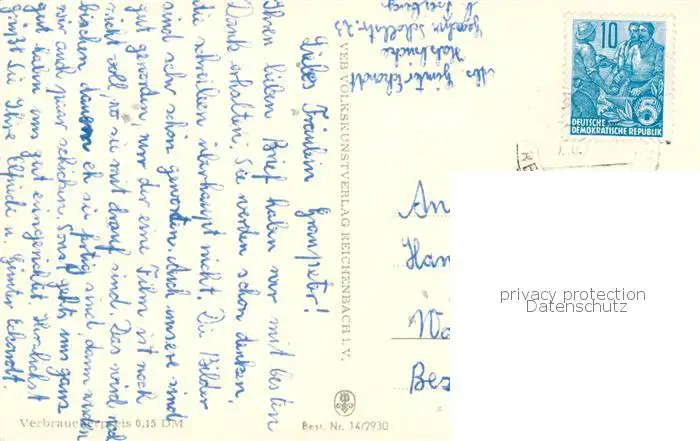 Liebes Fräulein Grampeter!
Ihren lieben Brief haben wir mit besten
Dank erhalten. Sie werden schon denken,
die schreiben überhaupt nicht. Die Bilder
sind sehr schön geworden. Auch unsere sind
gut geworden, nur der eine Film ist noch
nicht voll, wo sie mit drauf sind. Das wird noch
bischen dauern eh sie fertig sind, dann werden
wir auch paar schicken. Sonst gehts uns ganz
gut haben uns gut eingerichtet. Herzlichst
grüßt Sie Ihre Elfriede u. Günter Eckardt.
Verbraucherpreis 0,15 DM
VEB VOLKSKUNSTVERLAG REICHENBACH i. V.
Best. Nr. 14/2930
Abs. Günter Eckardt
Halsbrücke
10
5
DEUTSCHE
DEMOKRATISCHE REPUBLIK
An
Han
Wa
Bez
privacy protection
Datenschutz